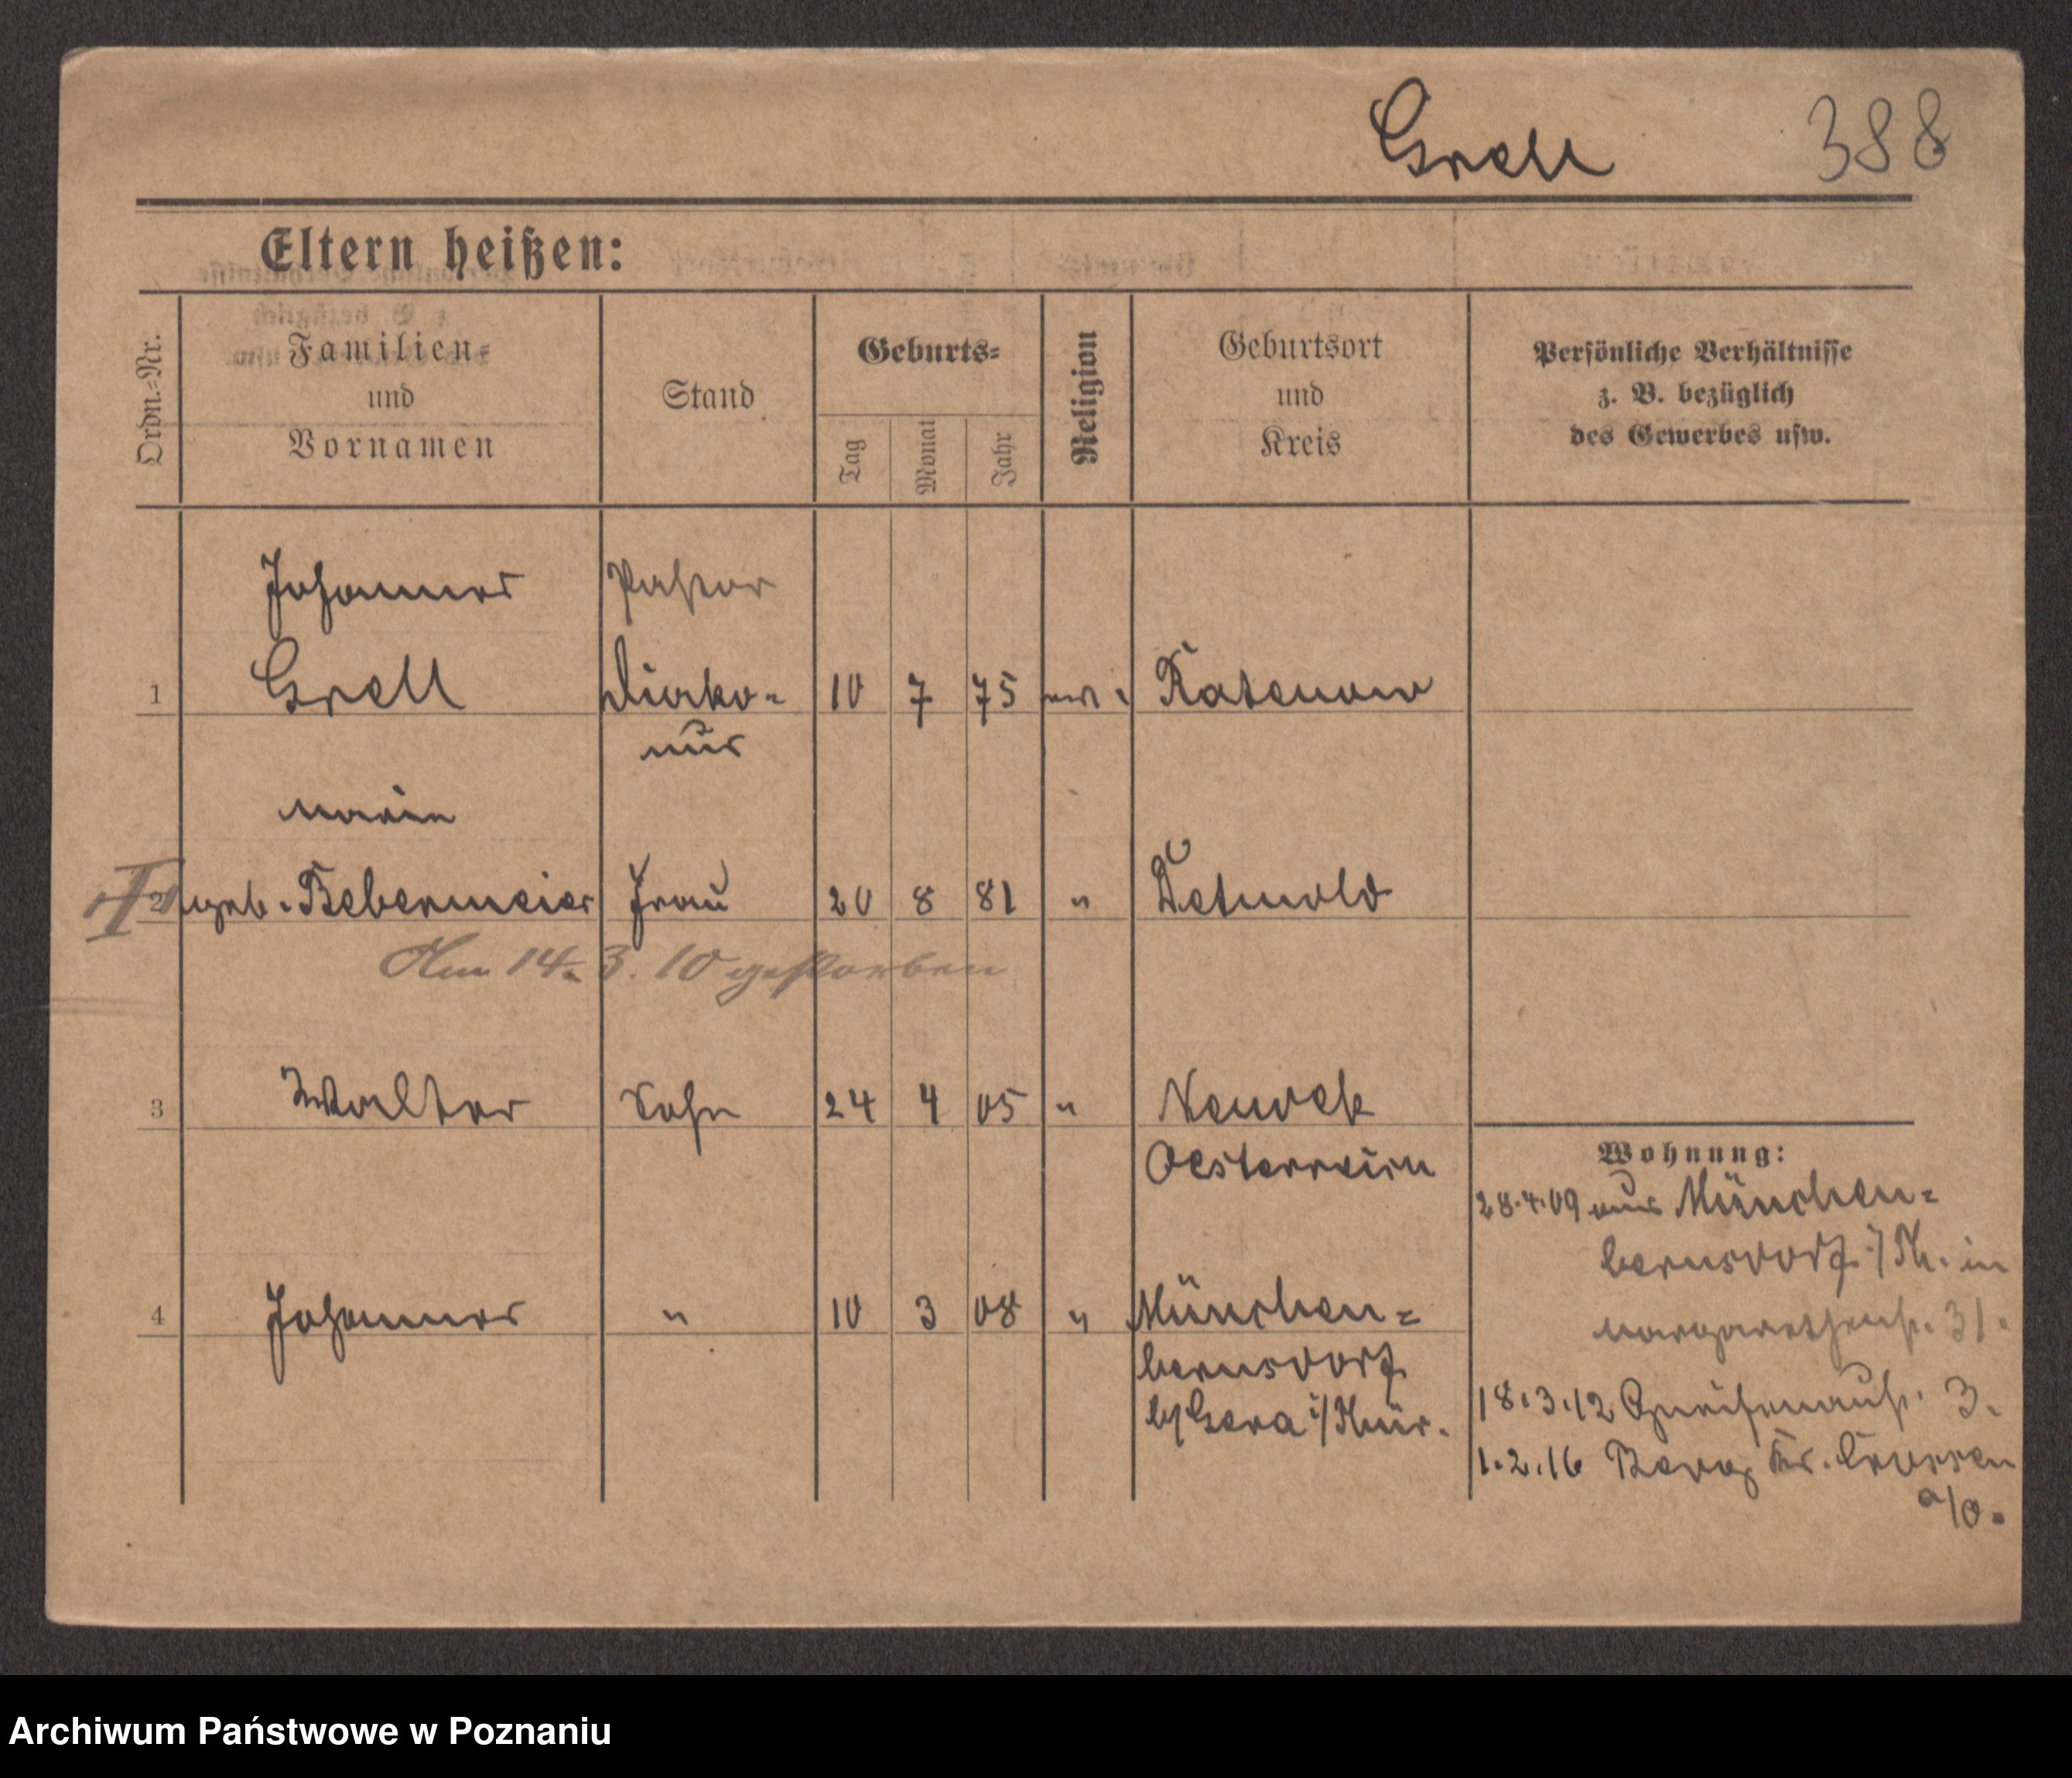 Grell
388
Eltern heißen:
Ordn.-Nr.
Familien-
und
Vornamen
Stand
Geburts-
Tag
Monat
Jahr
Religion
Geburtsort
und
Kreis
Persönliche Verhältnisse
z. B. bezüglich
des Gewerbes usw.
Johannes Pastor
1 Grell Diako- 10 7 75 ev. Ratenow
nus
Marie
2 geb. Bebermeier Frau 20 8 81 " Detmold
Am 14. 3. 10 gestorben
3 Walter Sohn 24 4 05 " Neudek
Oesterreich
4 Johannes " 10 3 08 " München-
bernsdorf
b/Gera i/Thür.
Wohnung:
28.4.09 aus München-
bernsdorf i/Th. in
Margarethenstr. 31.
18.3.12 Gneisenaustr. 3.
1.2.16 Kr. Crossen
a/O.
Archiwum Państwowe w Poznaniu